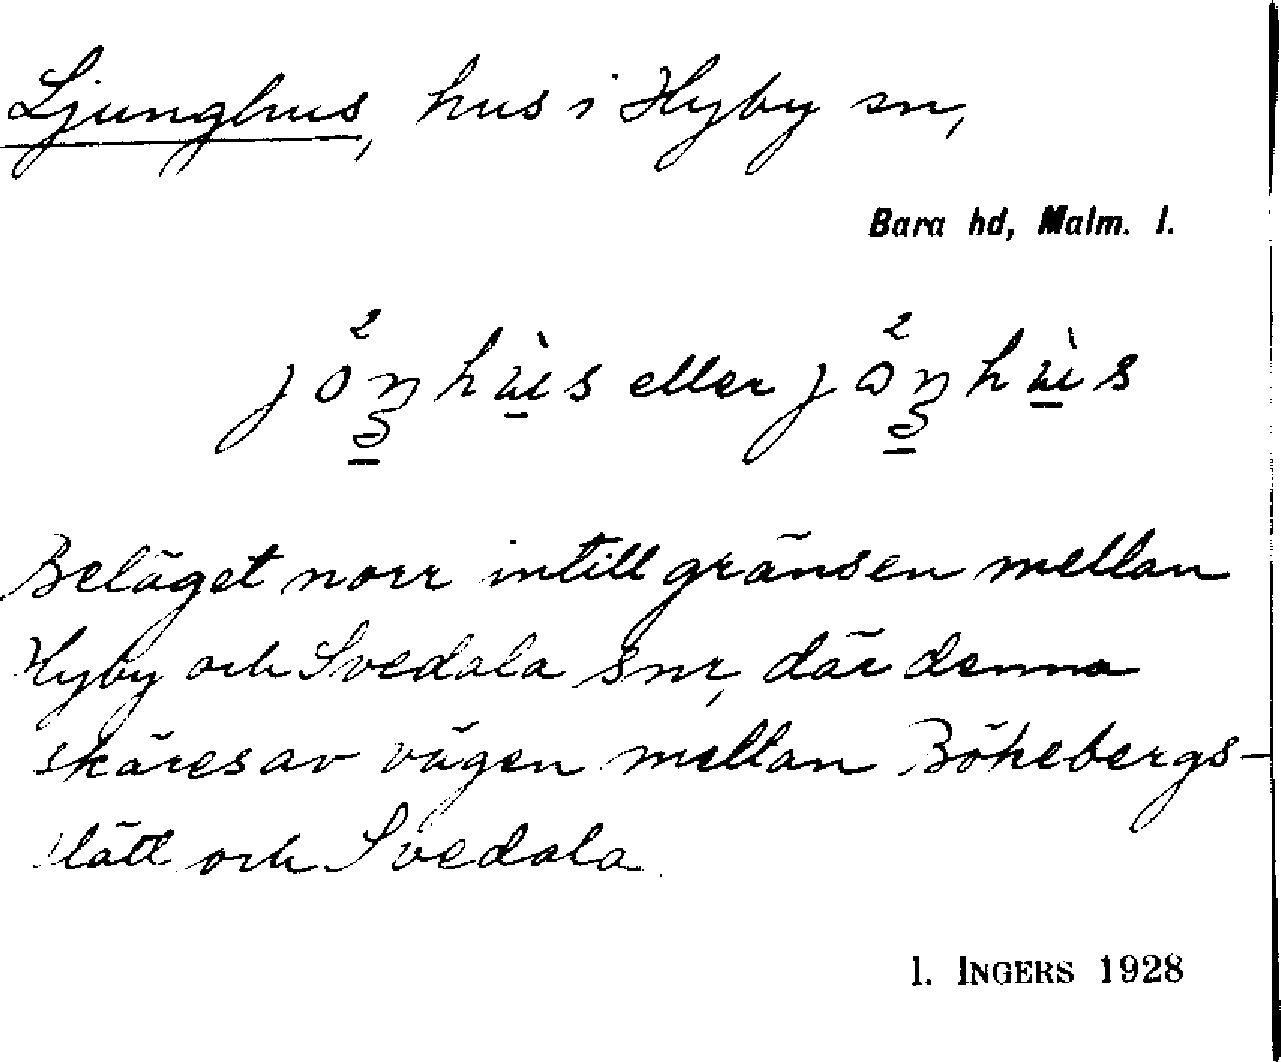 Ljunghus, hus i Hyby sn,
Bara hd, Malm. l.
eller
Beläget norr intill gränsen mellan
Hyby och Svedala snr, där denna
skäres av vägen mellan Bökebergs-
slätt och Svedala.
I. INGERS 1928